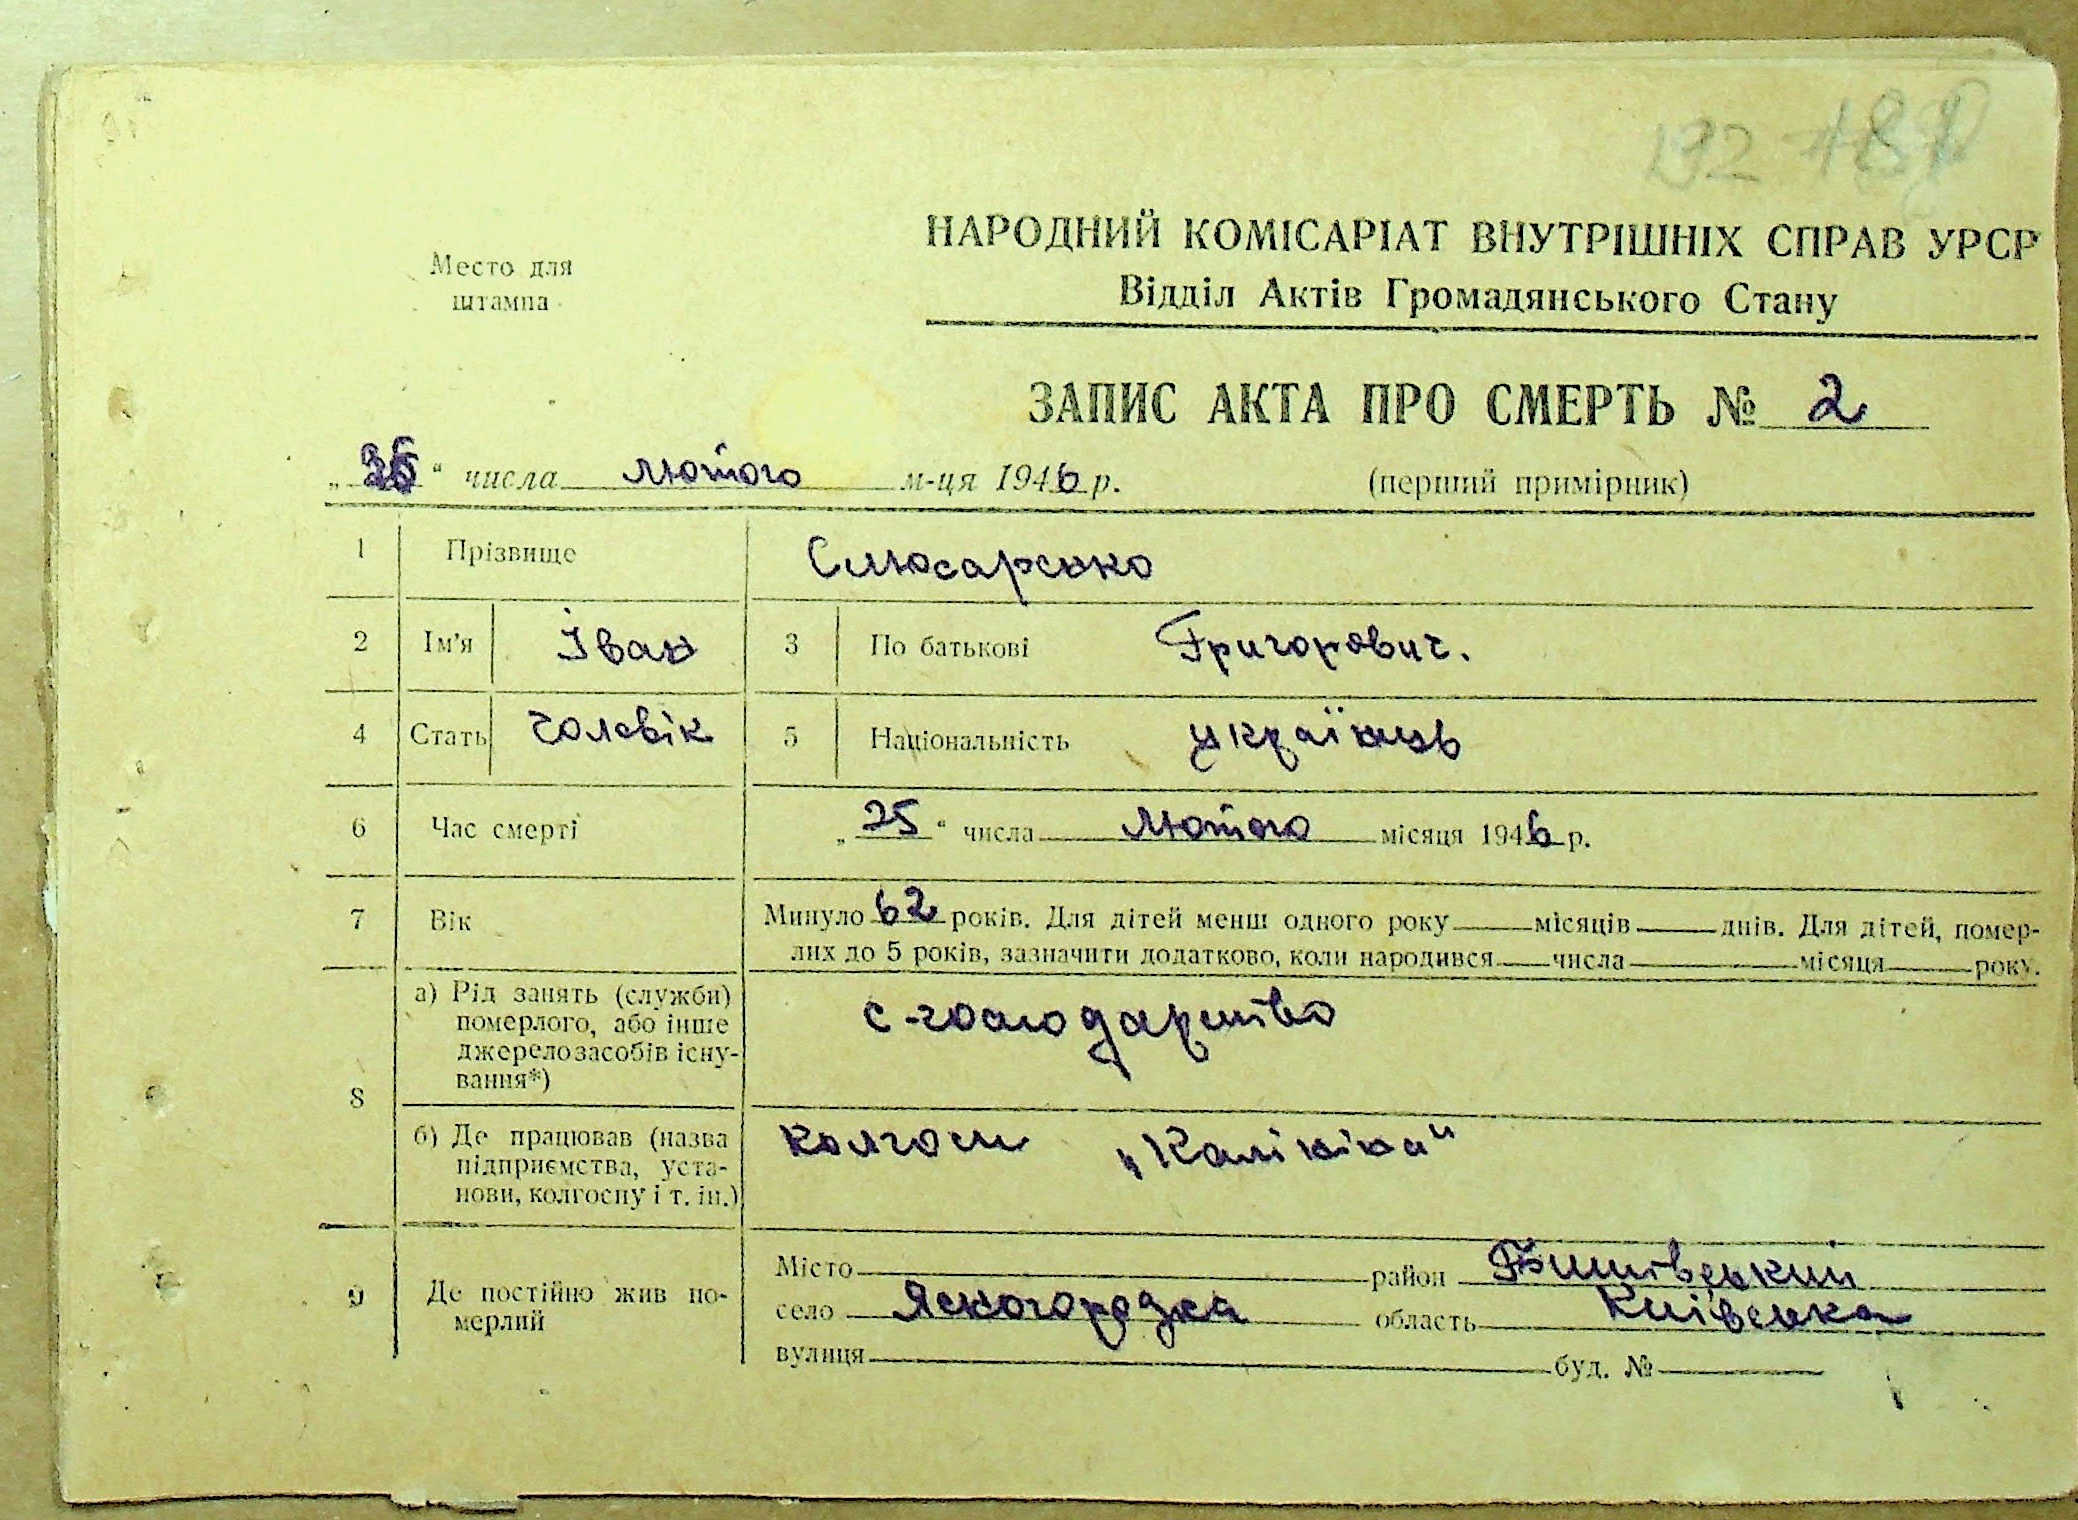 192 181
НАРОДНИЙ КОМІСАРІАТ ВНУТРІШНІХ СПРАВ УРСР
Место для
штампа
Відділ Актів Громадянського Стану
ЗАПИС АКТА ПРО СМЕРТЬ № 2
„26“ числа лютого м-ця 1946 р. (перший примірник)
1 Прізвище Слюсаренко
2 Ім'я Іван 3 По батькові Григорович.
4 Стать чоловік 5 Національність українець
6 Час смерті „25“ числа лютого місяця 1946 р.
7 Вік Минуло 62 років. Для дітей менш одного року місяців днів. Для дітей, помер-
лих до 5 років, зазначити додатково, коли народився числа місяця року.
8 а) Рід занять (служби)
померлого, або інше
джерело засобів існу-
вання*)
с-господарство
б) Де працював (назва
підприємства, уста-
нови, колгоспу і т. ін.)
колгосп „Калініна"
9 Де постійно жив по-
мерлий
Місто район Бишівський
село Яскогородка область Київська
вулиця буд. №